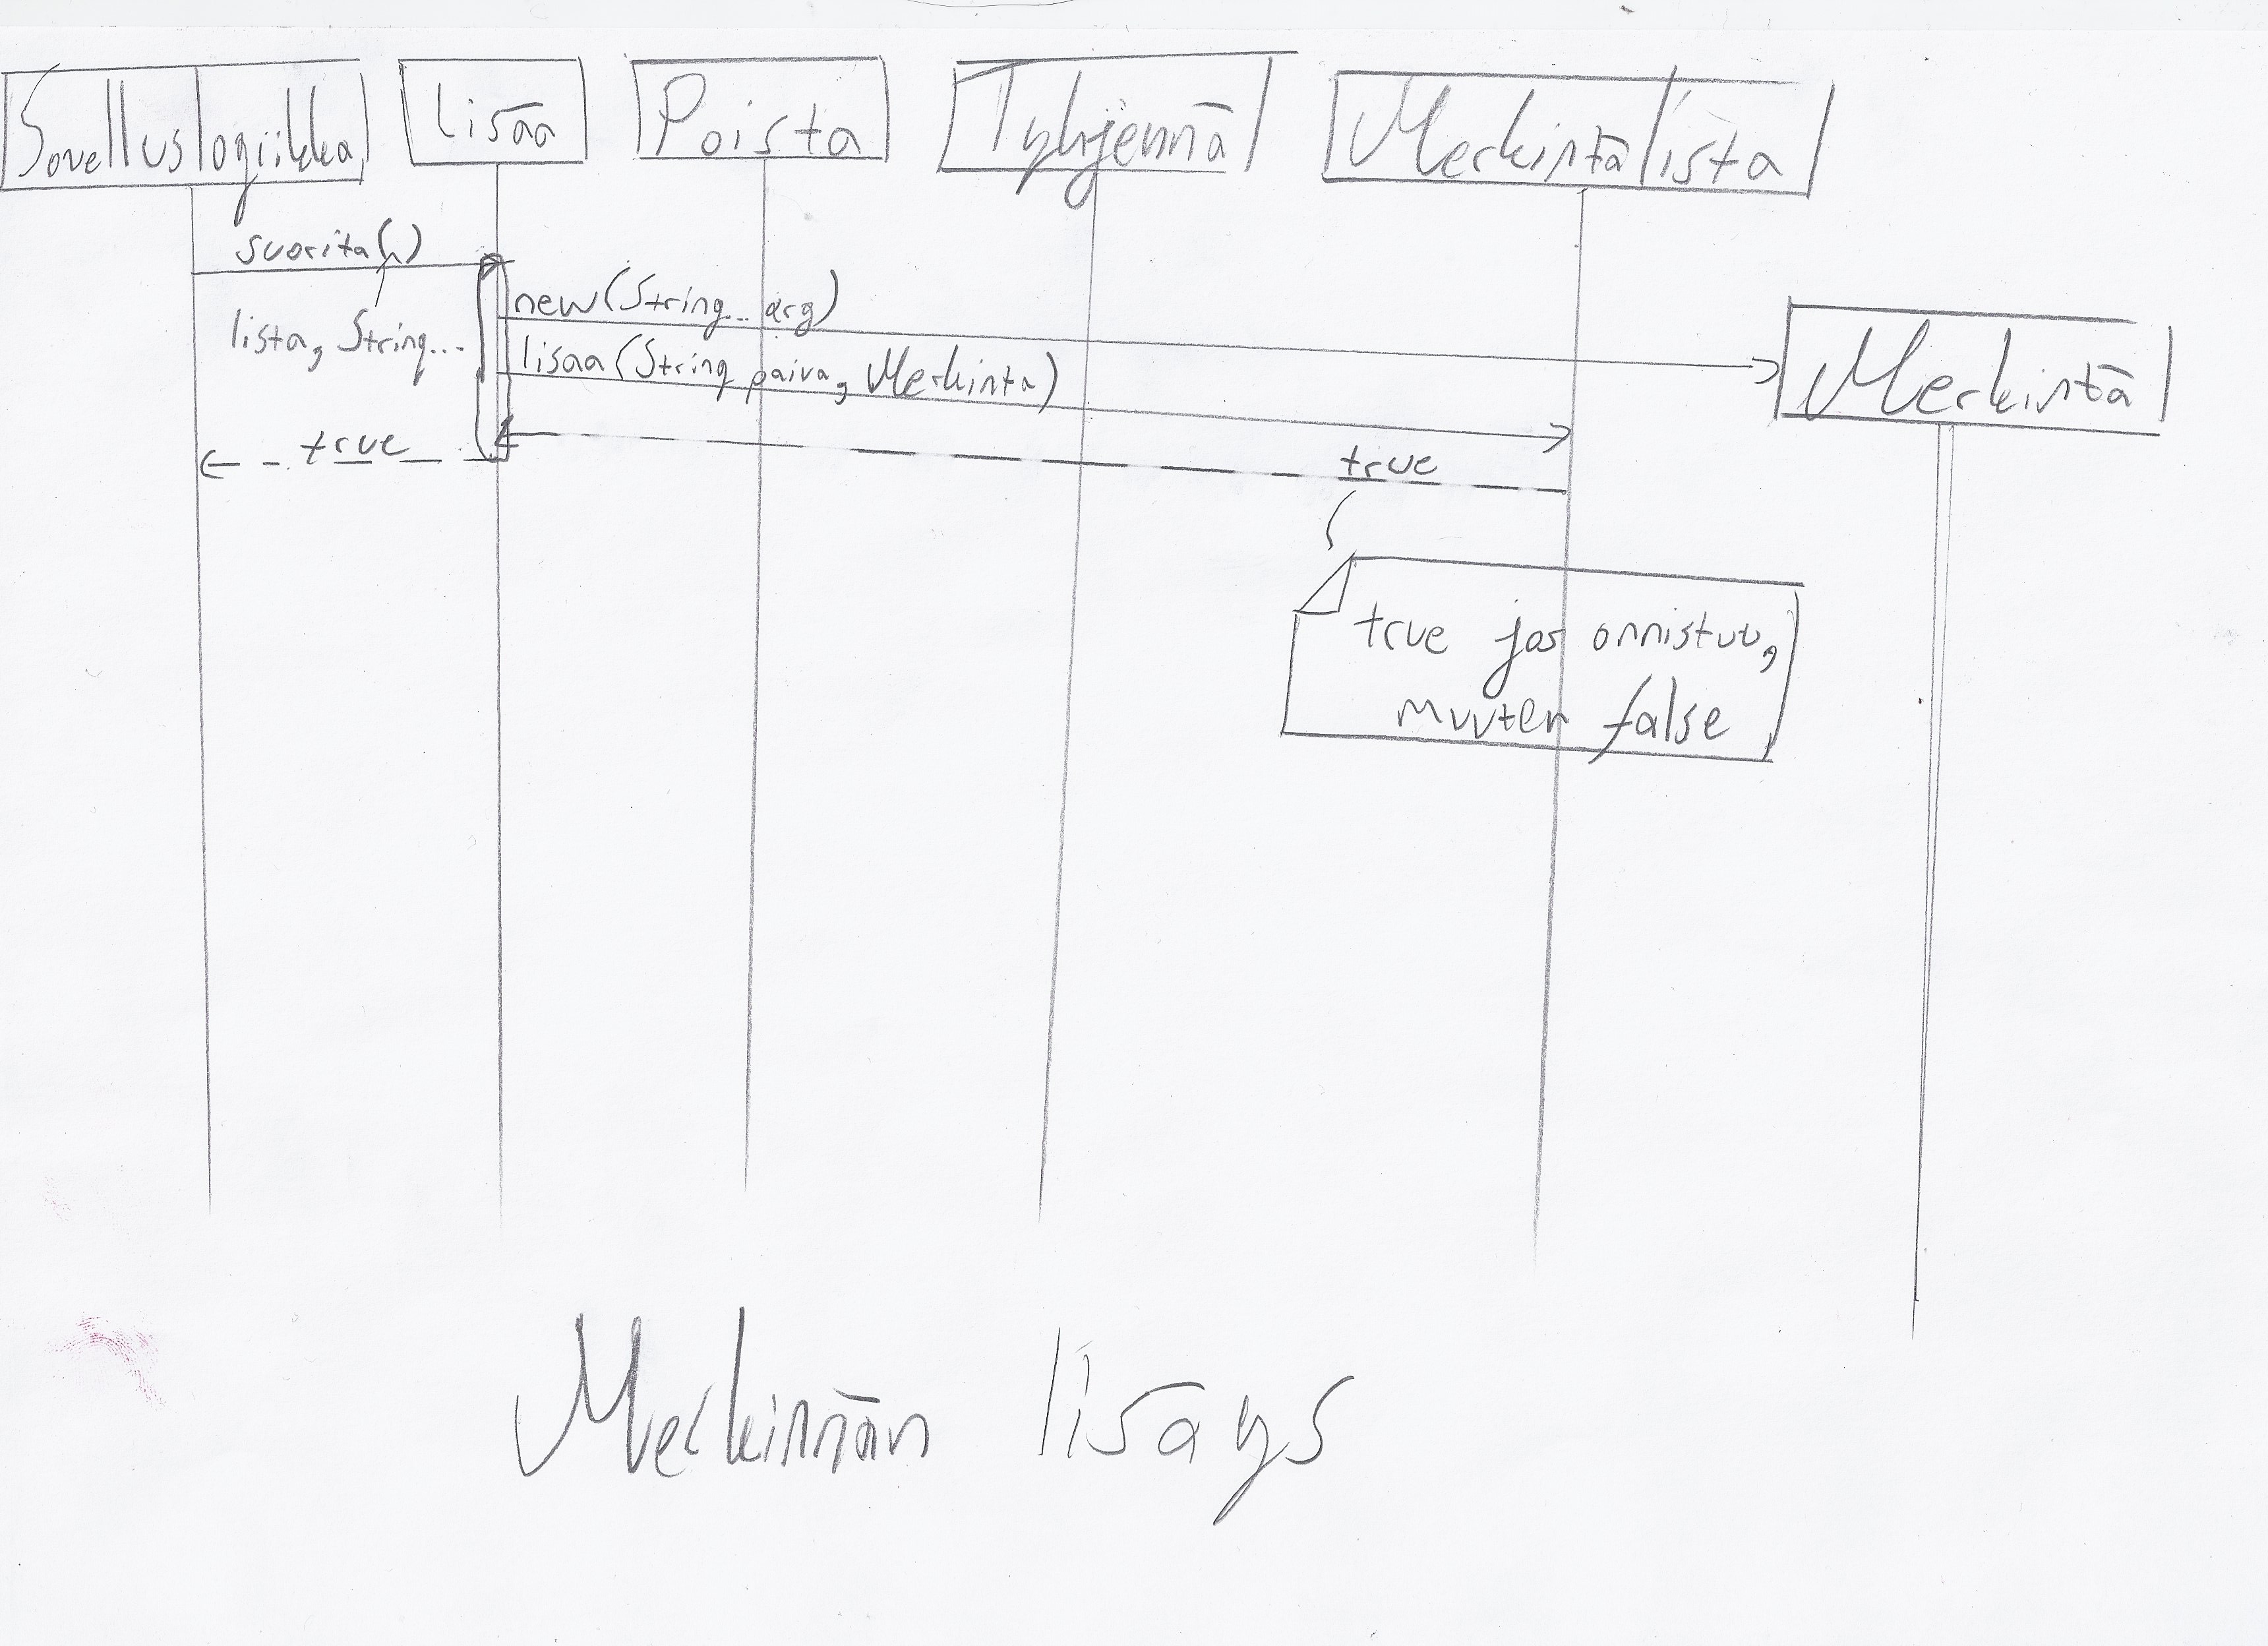 Sovelluslogiikka
Lisää
Poista
Tyhjennä
Merkintälista
suorita( )
lista, String...
new(String... arg)
lisaa(String paiva, Merkinta)
Merkintä
true
true
true jos onnistuu,
muuten false
Merkinnän lisäys